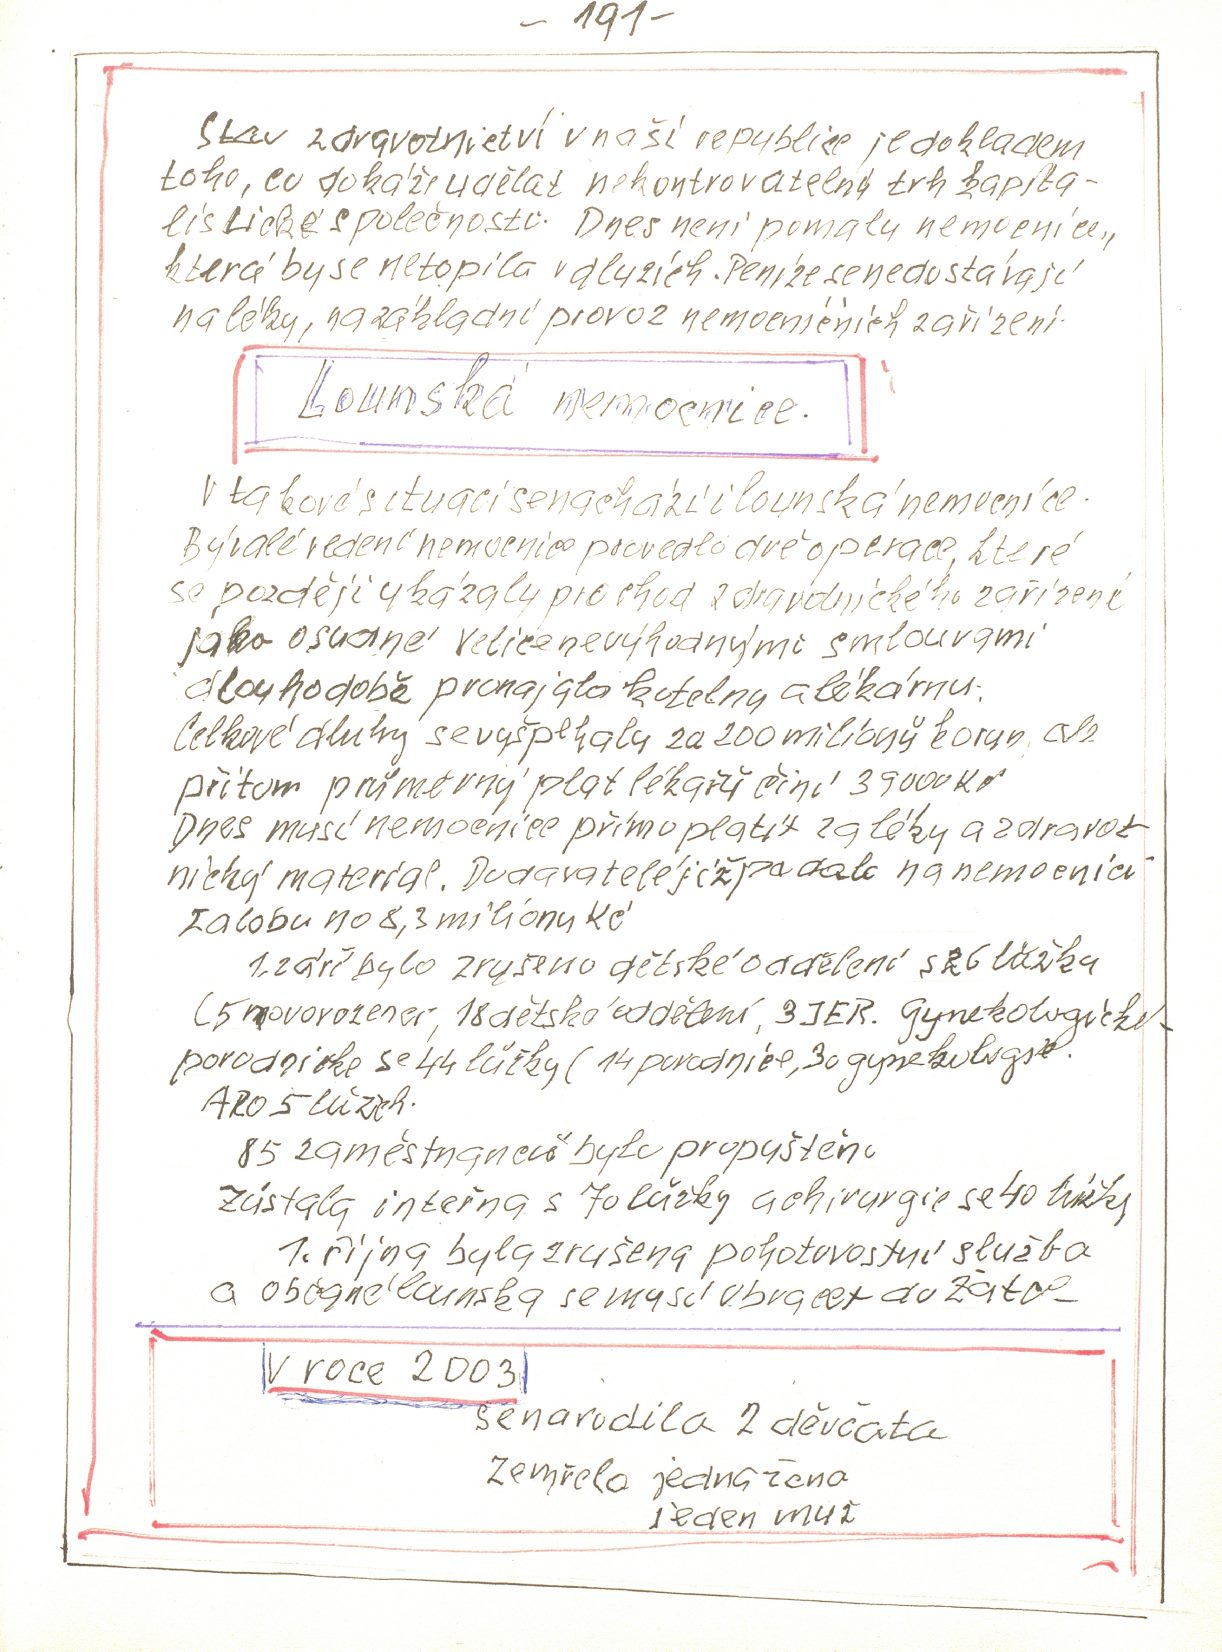 - 191 -
Stav zdravotnictví v naší republice je dokladem
toho, co dokáže udělat nekontrovatelný trh kapita-
listické společnosti. Dnes není pomalu nemocnice,,
která by se netopila v dluzích. Peníze se nedostávají
na léky, na základní provoz nemocničních zařízení.
Lounská nemocnice.
V takové situaci se nachází i lounská nemocnice.
Bývalé vedení nemocnice provedlo dvě operace, které
se později ukázaly pro chod zdravotnického zařízení
jako osudné Velice nevýhodnými smlouvami
dlouhodobě pronajalo kotelnu a lékárnu.
Celkové dluhy se vyšplhaly za 200 miliónů korun,
přitom průměrný plat lékařů činí 39000 Kč
Dnes musí nemocnice přímo platit za léky a zdravot
nický material. Dodavatelé již podali na nemocnici
žalobu na 8,3 miliónu Kč
1. září bylo zrušeno dětské oddělení s 26 lůžky
(5 novorozenci, 18 dětské oddělení, 3 JER. Gynekologicko-
porodnické se 44 lůžky (14 porodnice, 30 gynekologie.
ARO 5 lůžch.
85 zaměstnanců bylo propuštěno
Zústala interna s 70 lůžky a chirurgie se 40 lůžky
1. října byla zrušena pohotovostní služba
a občané Lounska se musí obracet do Žatce
V roce 2003
se narodila 2 děvčata
Zemřela jedna žena
jeden muž